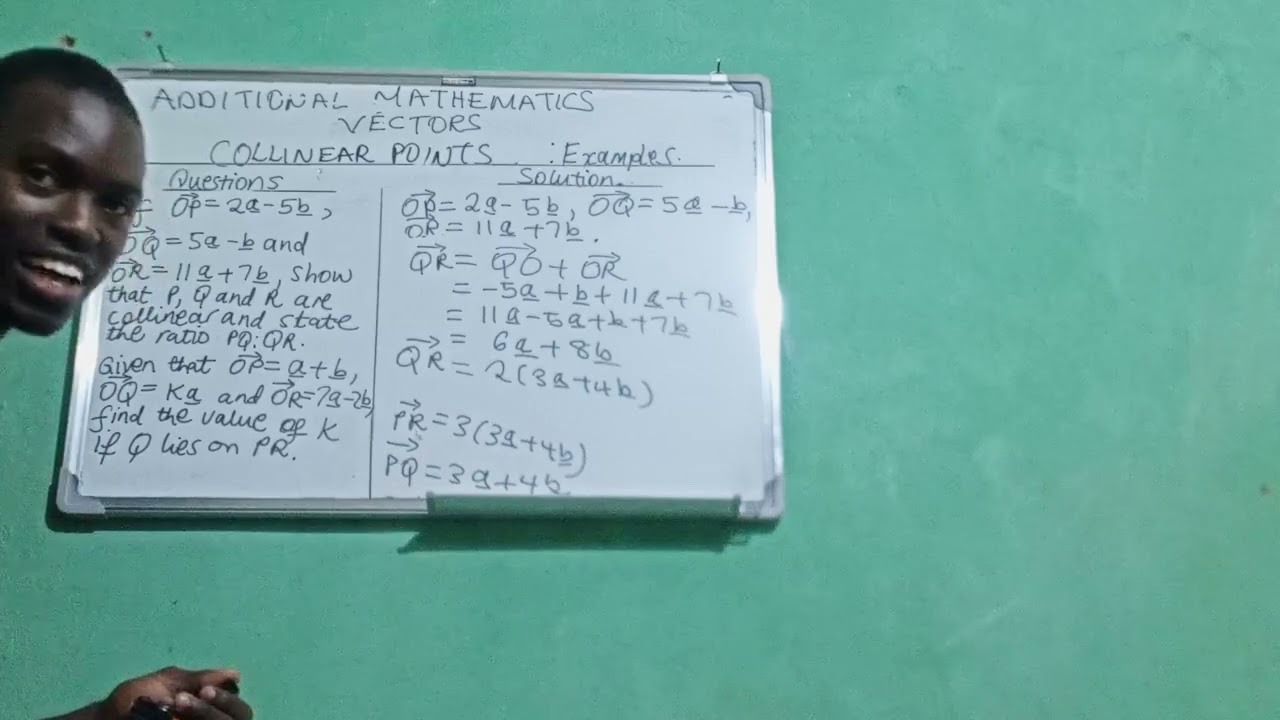 ADDITIONAL MATHEMATICS
VECTORS
COLLINEAR POINTS : Examples.
Questions
OP = 2a - 5b,
OQ = 5a - b and
OR = 11a + 7b, show
that P, Q and R are
collinear and state
the ratio PQ:QR.
Given that OP = a + b,
OQ = Ka and OR = 7a - 2b,
find the value of K
If Q lies on PR.
Solution.
OP = 2a - 5b, OQ = 5a - b,
OR = 11a + 7b.
QR = QO + OR
= -5a + b + 11a + 7b
= 11a - 5a + b + 7b
= 6a + 8b
QR = 2(3a + 4b)
PR = 3(3a + 4b)
PQ = 3a + 4b